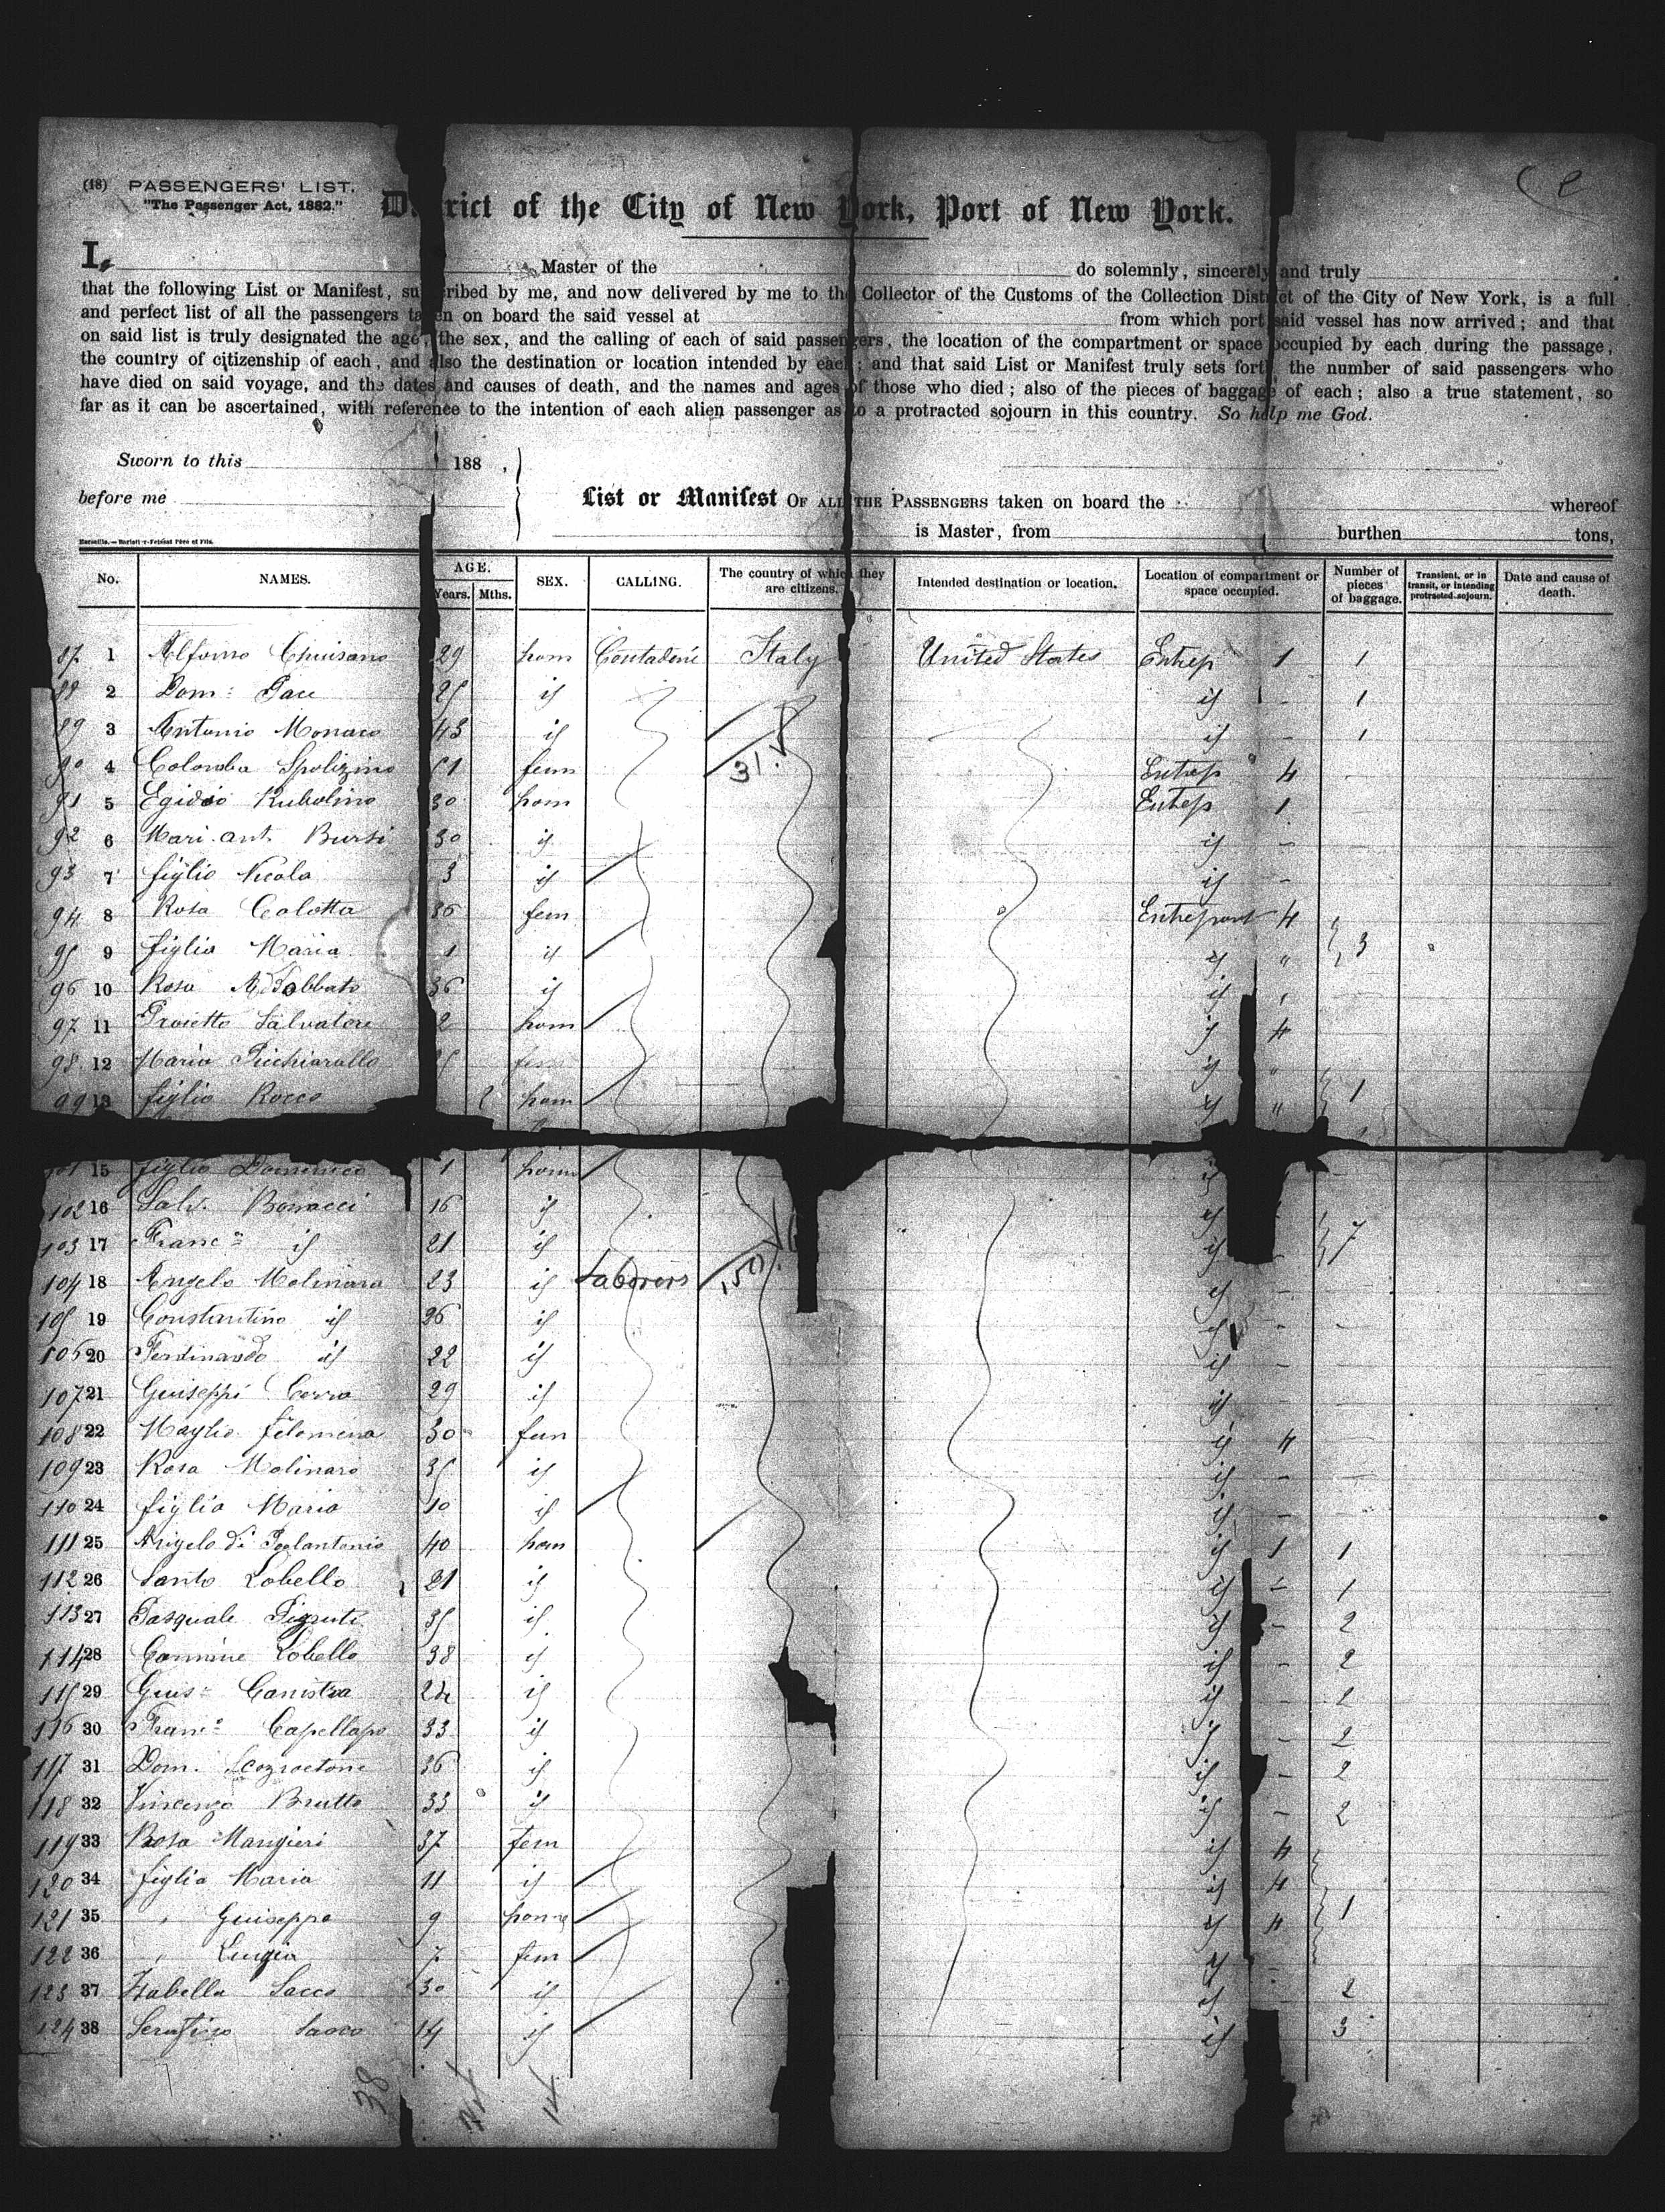 (18) PASSENGERS' LIST.
"The Passenger Act, 1882."
D rict of the City of New York, Port of New York.
I, Master of the do solemnly, sincerely and truly
that the following List or Manifest, su ribed by me, and now delivered by me to the Collector of the Customs of the Collection District of the City of New York, is a full
and perfect list of all the passengers taken on board the said vessel at from which port said vessel has now arrived; and that
on said list is truly designated the age, the sex, and the calling of each of said passengers, the location of the compartment or space occupied by each during the passage,
the country of citizenship of each, and also the destination or location intended by each; and that said List or Manifest truly sets forth the number of said passengers who
have died on said voyage, and the dates and causes of death, and the names and ages of those who died; also of the pieces of baggage of each; also a true statement, so
far as it can be ascertained, with reference to the intention of each alien passenger as to a protracted sojourn in this country. So help me God.
Sworn to this 188 ,
before me List or Manifest OF ALL THE PASSENGERS taken on board the whereof
is Master, from burthen tons,
No. NAMES. AGE. Years. Mths. SEX. CALLING. The country of which they are citizens. Intended destination or location. Location of compartment or space occupied. Number of pieces of baggage. Transient, or in transit, or intending protracted sojourn. Date and cause of death.
87 1 29 hom Contadini Italy United States Entrep 1 1
88 2 Dom: Pace 25 if if - 1
89 3 Antonio Monaco 43 if if - 1
90 4 Colomba Spolizino fem 31. Entrep 4
91 5 Egidio Rubolino 30 hom Entrep 1
92 6 Mari. ant. Bursi 30 if if -
93 7 figlio Nicola 3 if if -
94 8 Rosa Calotta 36 fem Entrepont 4
95 9 figlia Maria 1 if if " 3
96 10 Rosa 36 if if
97 11 Salvatore 2 hom if 4
98 12 Maria Picchiarallo fem if "
99 13 figlio Rocco hom if " 1
101 15 figlio Domenico 1 hom if
102 16 Salv. Bonacci 16 if if
103 17 Franc° if 21 if if - 7
104 18 Angelo Molinara 23 if Laborers if -
105 19 Constantino if 26 if if -
106 20 Ferdinando if 22 if if -
107 21 Guiseppi Cerra 29 if if
108 22 Maglio filomena 30 fem if 4
109 23 Rosa Molinaro 35 if if -
110 24 figlia Maria 10 if if -
111 25 Angelo di Paolantonio 40 hom if 1 1
112 26 Santo Lobello 21 if if - 1
113 27 Pasquale 35 if if - 2
114 28 Carmine Lobello 38 if if - 2
115 29 Gius: Canistra 24 if if - 1
116 30 Franc° Capellapo 33 if if - 2
117 31 Dom. 36 if if - 2
118 32 Vincenzo Brutto 33 if if - 2
119 33 Rosa Mangieri 37 fem if 4
120 34 figlia Maria 11 if if 4
121 35 " Guiseppe 9 homme if 4 1
122 36 " Luigia 7 fem if -
123 37 Isabella Sacco 30 if if 2
124 38 Serafino Sacco 14 if if 3
38